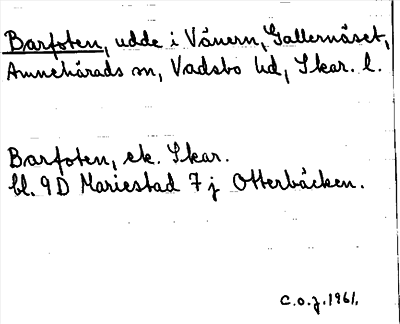 Barfoten, udde i Vänern, Gallernäset,
Amnehärads sn, Vadsbo hd, Skar. l.
Barfoten, ek. Skar.
bl. 9D Mariestad 7 j Otterbäcken.
C.O.J. 1961.